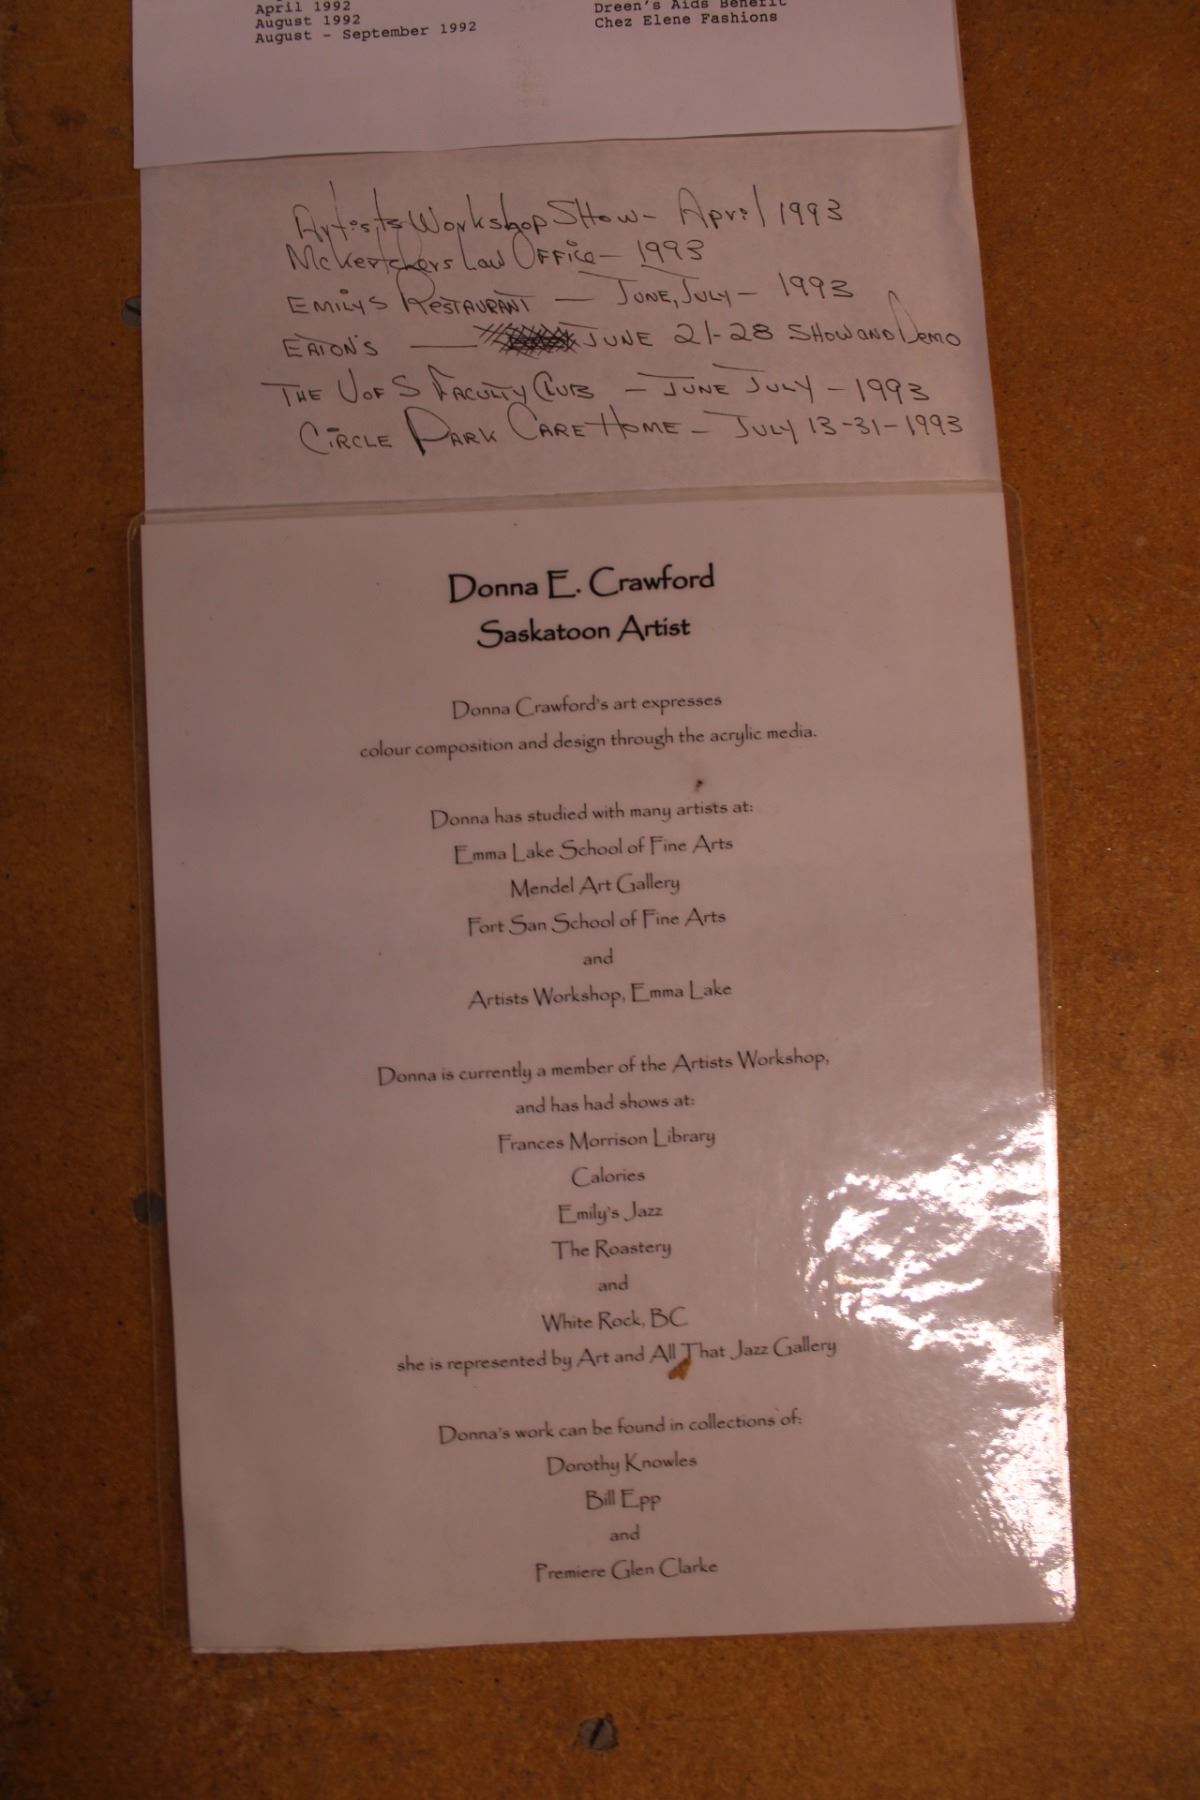 April 1992
August 1992
August - September 1992
Dreen's Aids Benefit
Chez Elene Fashions
Artists Workshop Show - April 1993
McKerchers Law Office - 1993
Emilys Restaurant - June, July - 1993
Eaton's - June 21-28 Show and Demo
The U of S Faculty Club - June July - 1993
Circle Park Care Home - July 13-31-1993
Donna E. Crawford
Saskatoon Artist
Donna Crawford's art expresses
colour composition and design through the acrylic media.
Donna has studied with many artists at:
Emma Lake School of Fine Arts
Mendel Art Gallery
Fort San School of Fine Arts
and
Artists Workshop, Emma Lake
Donna is currently a member of the Artists Workshop,
and has had shows at:
Frances Morrison Library
Calories
Emily's Jazz
The Roastery
and
White Rock, BC
she is represented by Art and All That Jazz Gallery
Donna's work can be found in collections of:
Dorothy Knowles
Bill Epp
and
Premiere Glen Clarke